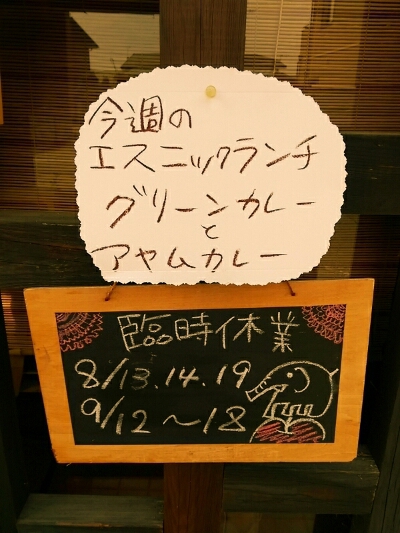 今週の
エスニックランチ
グリーンカレー
と
アヤムカレー
臨時休業
8/13.14.19
9/12～18